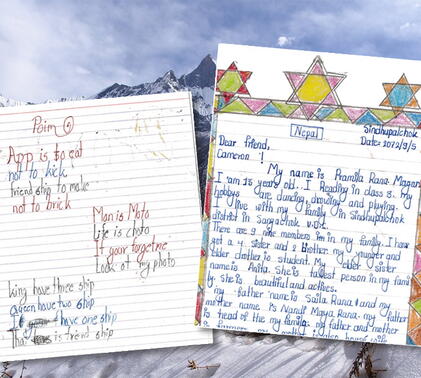 Poim
App is to eat
not to kick
friend ship to make
not to brick
Man is Moto
Life is choto
If your forgetne
Look at my photo
king have three ship
queen have two ship
have one ship
is friend ship
Nepal
Sindhupalchok
Date: 2072/9/5
Dear friend,
Cameron !
My name is Pramila Rana Magar
I am 15 years old. I Reading in class 8. My
hobbys are dancing, drowing and playing.
I live with my family in Sindhupalchok
district in Sangachok V.D.C.
There are 9 nine members im in my family. I have
got a 4 sister and 2 brother. my younger and
older drother is student. My older sister
name is Anita. She is tallest person in my fami
ly. she is beautiful and actives.
my father name is Saila Rana and my
mother name is Nandi Maya Rana. my father
is head of the my family. my father and mother